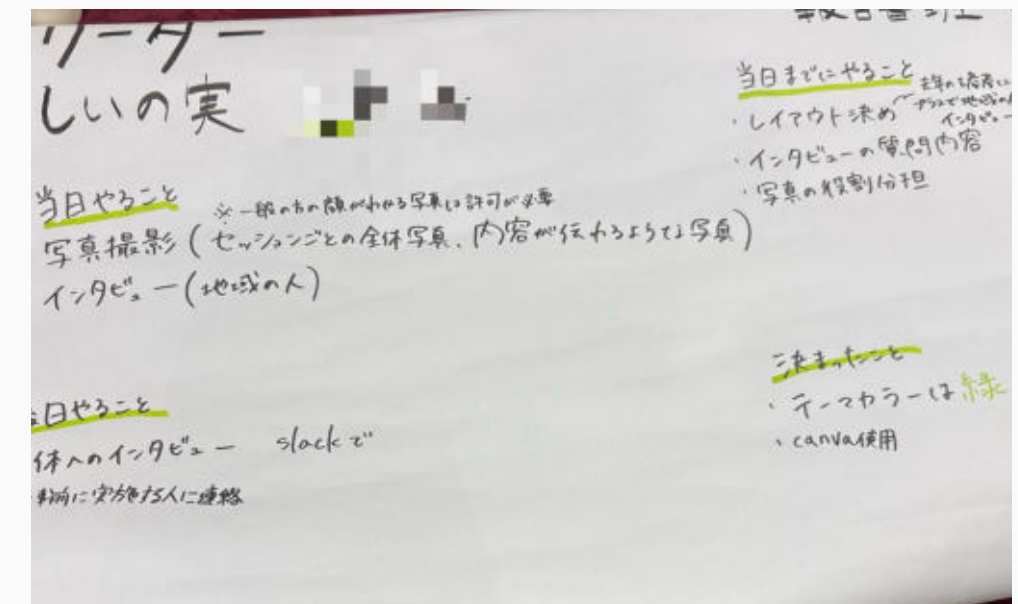 リーダー
しいの実
当日やること
※一般の方の顔がわかる写真は許可が必要
写真撮影(セッションごとの全体写真、内容が伝わるような写真)
インタビュー(地域の人)
日やること
体へのインタビュー slackで
事前に実施する人に連絡
報告書
当日までにやること
・レイアウト決め
プラスで地域の
インタビュー
・インタビューの質問内容
・写真の役割分担
決まったこと
・テーマカラーは緑
・canva使用